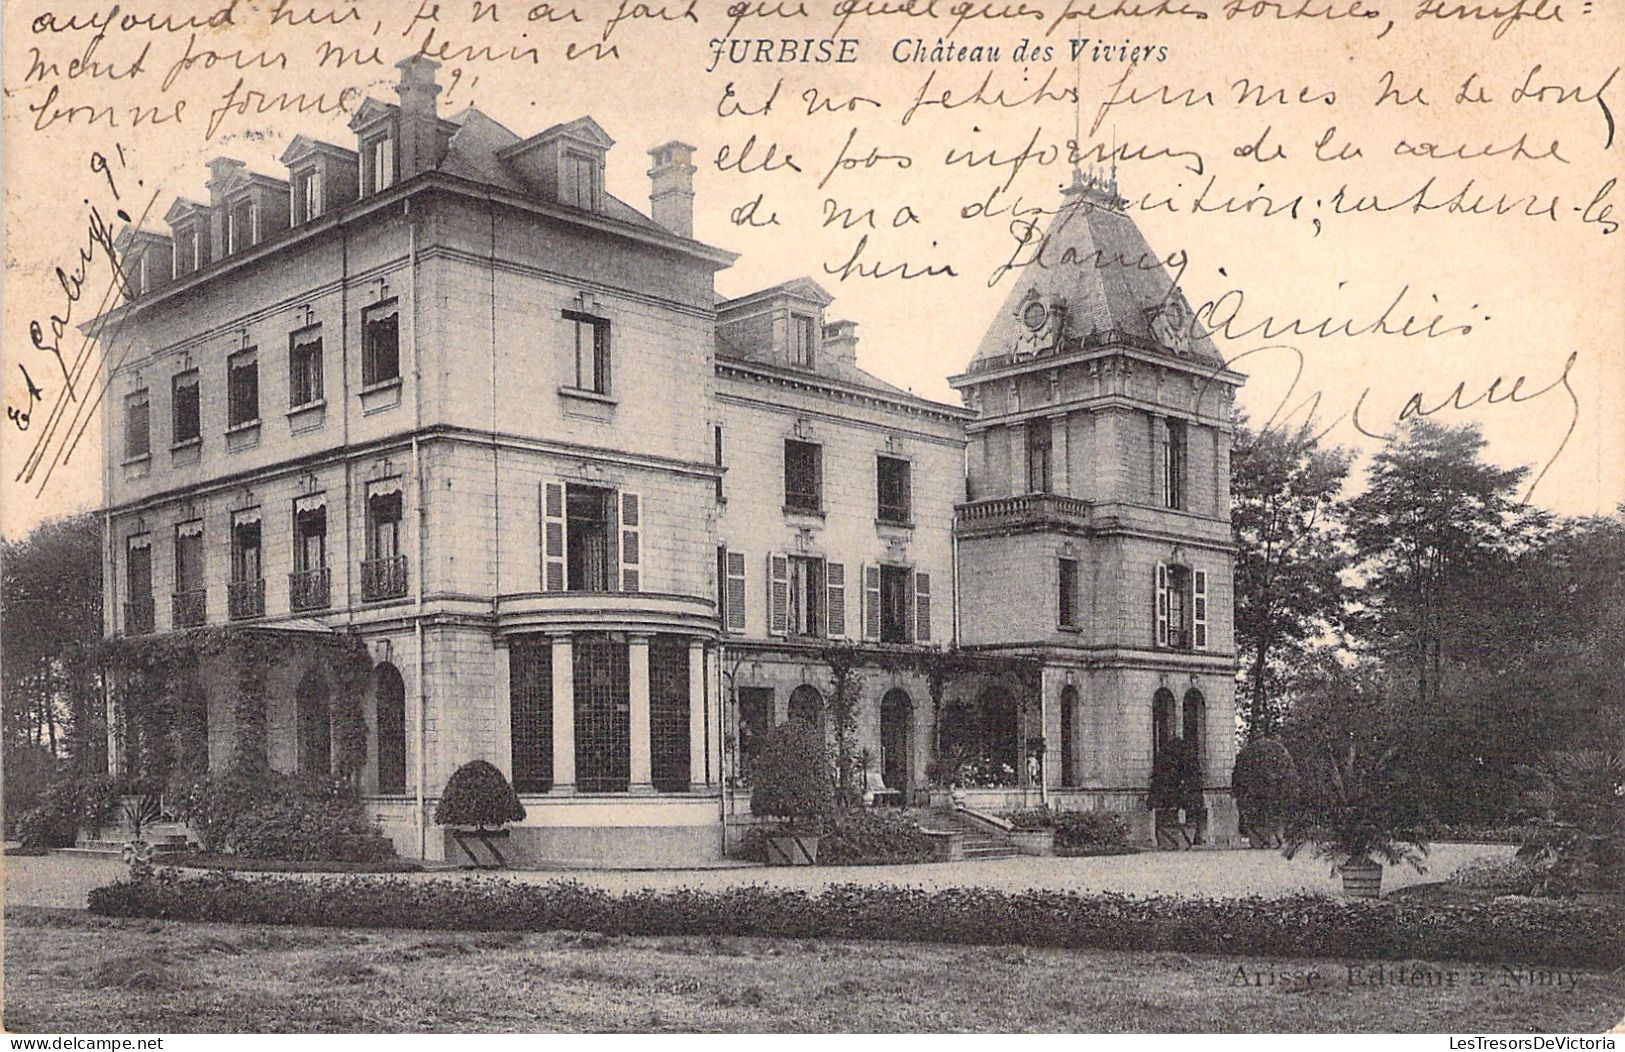 aujourd'hui, je n'ai fait que quelques petites sorties, simple=
ment pour me tenir en
bonne forme
JURBISE Château des Viviers
Et nos petites femmes ne se sont
elle pas informées de la cause
de ma disparition; rassure-les
hein
Amitiés
Marcel
Et Gaby ?!
Arisse, Editeur à Nimy
delcampe.net
LesTresorsDeVictoria